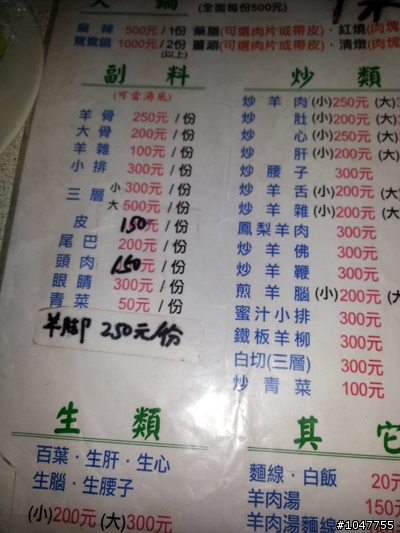 火鍋 (全面每份500元)
麻辣 500元/1份 藥膳(可選肉片或帶皮)·紅燒(肉塊
鴛鴦鍋 1000元/2份 薑涮(可選肉片或帶皮)·清燉(肉塊
(以上)
副料
(可當湯底)
羊骨 250元/份
大骨 200元/份
羊雜 100元/份
小排 300元/份
三層 小300元/份
大500元/份
皮 150元/份
尾巴 200元/份
頭肉 150元/份
眼睛 300元/份
青菜 50元/份
羊腳 250元/份
炒類
炒羊肉(小)250元(大)3
炒肚(小)200元(大)3
炒心(小)250元(大)3
炒肝(小)200元(大)3
炒腰子 300元
炒羊舌(小)200元(大)3
炒羊雜(小)200元(大)3
鳳梨羊肉 300元
炒羊佛 300元
炒羊鞭 300元
煎羊腦(小)200元(大
蜜汁小排 300元
鐵板羊柳 300元
白切(三層) 300元
炒青菜 100元
生類
百葉·生肝·生心
生腦·生腰子
(小)200元(大)300元
其它
麵線·白飯 20元
羊肉湯 150元
羊肉湯麵線 100
#1047755